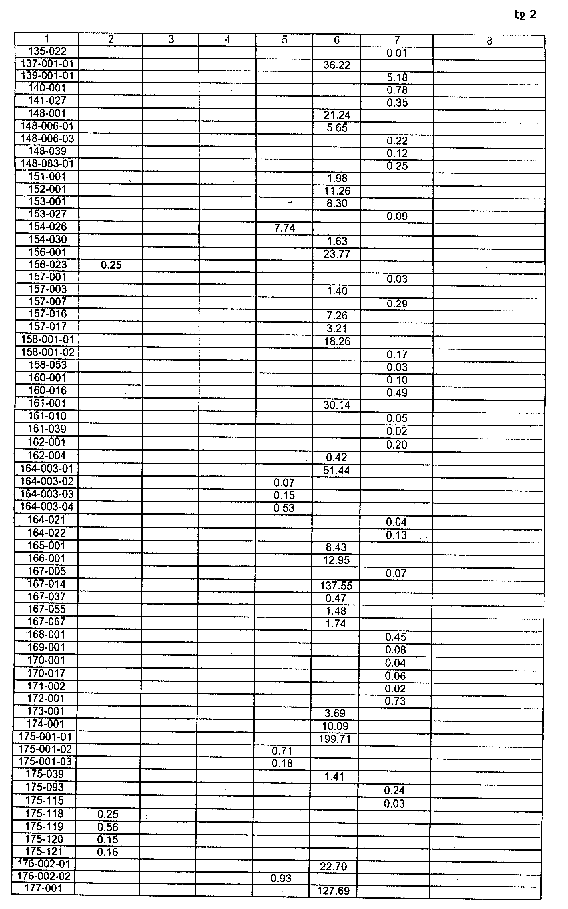 tg 2
1 2 3 4 5 6 7 8
135-022 0.01
137-001-01 36.22
139-001-01 5.18
140-001 0.78
141-027 0.35
148-001 21.24
148-006-01 5.65
148-006-03 0.22
148-039 0.12
148-083-01 0.25
151-001 1.98
152-001 11.26
153-001 8.30
153-027 0.09
154-026 7.74
154-030 1.63
156-001 23.77
156-023 0.25
157-001 0.03
157-003 1.40
157-007 0.29
157-016 7.26
157-017 3.21
158-001-01 18.26
158-001-02 0.17
158-053 0.03
160-001 0.10
160-016 0.49
161-001 30.14
161-010 0.05
161-039 0.02
162-001 0.20
162-004 0.42
164-003-01 51.44
164-003-02 0.07
164-003-03 0.15
164-003-04 0.53
164-021 0.04
164-022 0.13
165-001 8.43
166-001 12.95
167-005 0.07
167-014 137.55
167-037 0.47
167-055 1.48
167-067 1.74
168-001 0.45
169-001 0.08
170-001 0.04
170-017 0.06
171-002 0.02
172-001 0.73
173-001 3.69
174-001 10.09
175-001-01 199.71
175-001-02 0.71
175-001-03 0.18
175-039 1.41
175-093 0.24
175-115 0.03
175-118 0.25
175-119 0.56
175-120 0.15
175-121 0.16
176-002-01 22.70
176-002-02 0.93
177-001 127.69